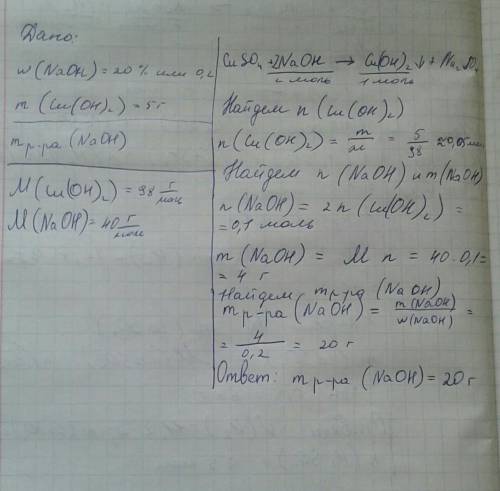 Дано:
w (NaOH) = 20 % или 0,2
m (Cu(OH)₂) = 5 г
m р-ра (NaOH)
M (Cu(OH)₂) = 98 г/моль
M (NaOH) = 40 г/моль
CuSO₄ + 2NaOH → Cu(OH)₂ ↓ + Na₂SO₄
2 моль 1 моль
Найдем n (Cu(OH)₂)
n (Cu(OH)₂) = m/M = 5/98 ≈ 0,05 моль
Найдем n (NaOH) и m (NaOH)
n (NaOH) = 2 n (Cu(OH)₂) =
= 0,1 моль
m (NaOH) = M n = 40 · 0,1 =
= 4 г
Найдем m р-ра (NaOH)
m р-ра (NaOH) = m (NaOH)/w (NaOH) =
= 4/0,2 = 20 г
Ответ: m р-ра (NaOH) = 20 г